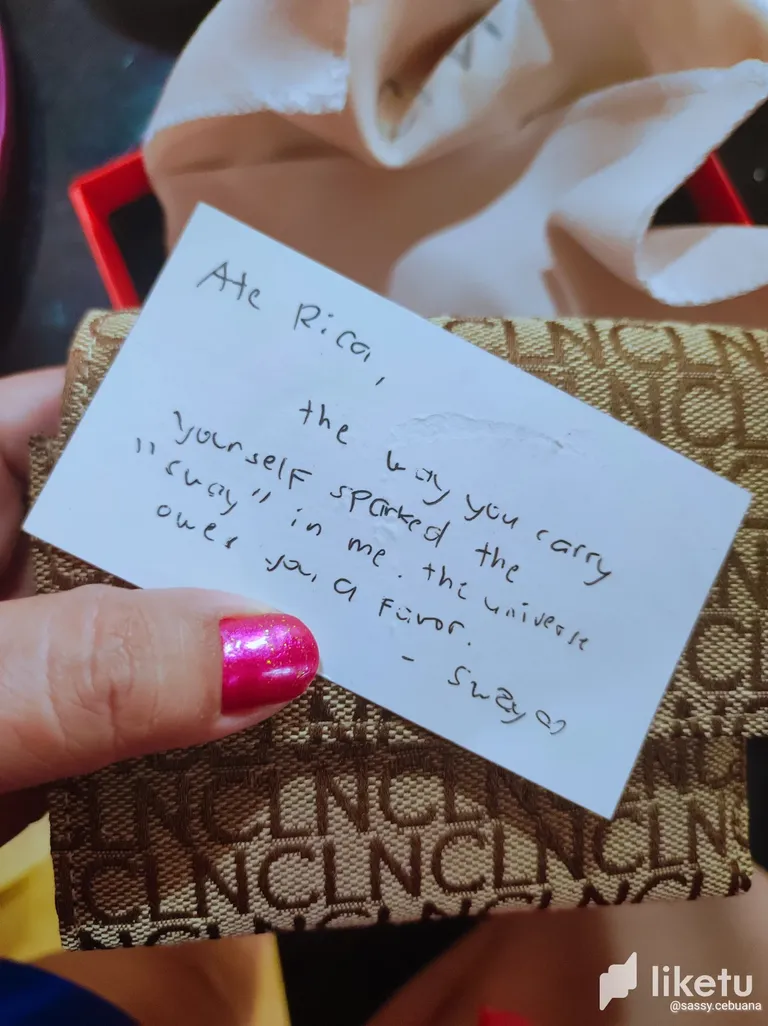 Ate Rica,
the way you carry
yourself sparked the
"sway" in me. the universe
owes you a favor.
- swzya
CLNCLN
CLNCLNCLN
CLNCLNCLNCLN
liketu
@sassy.cebuana